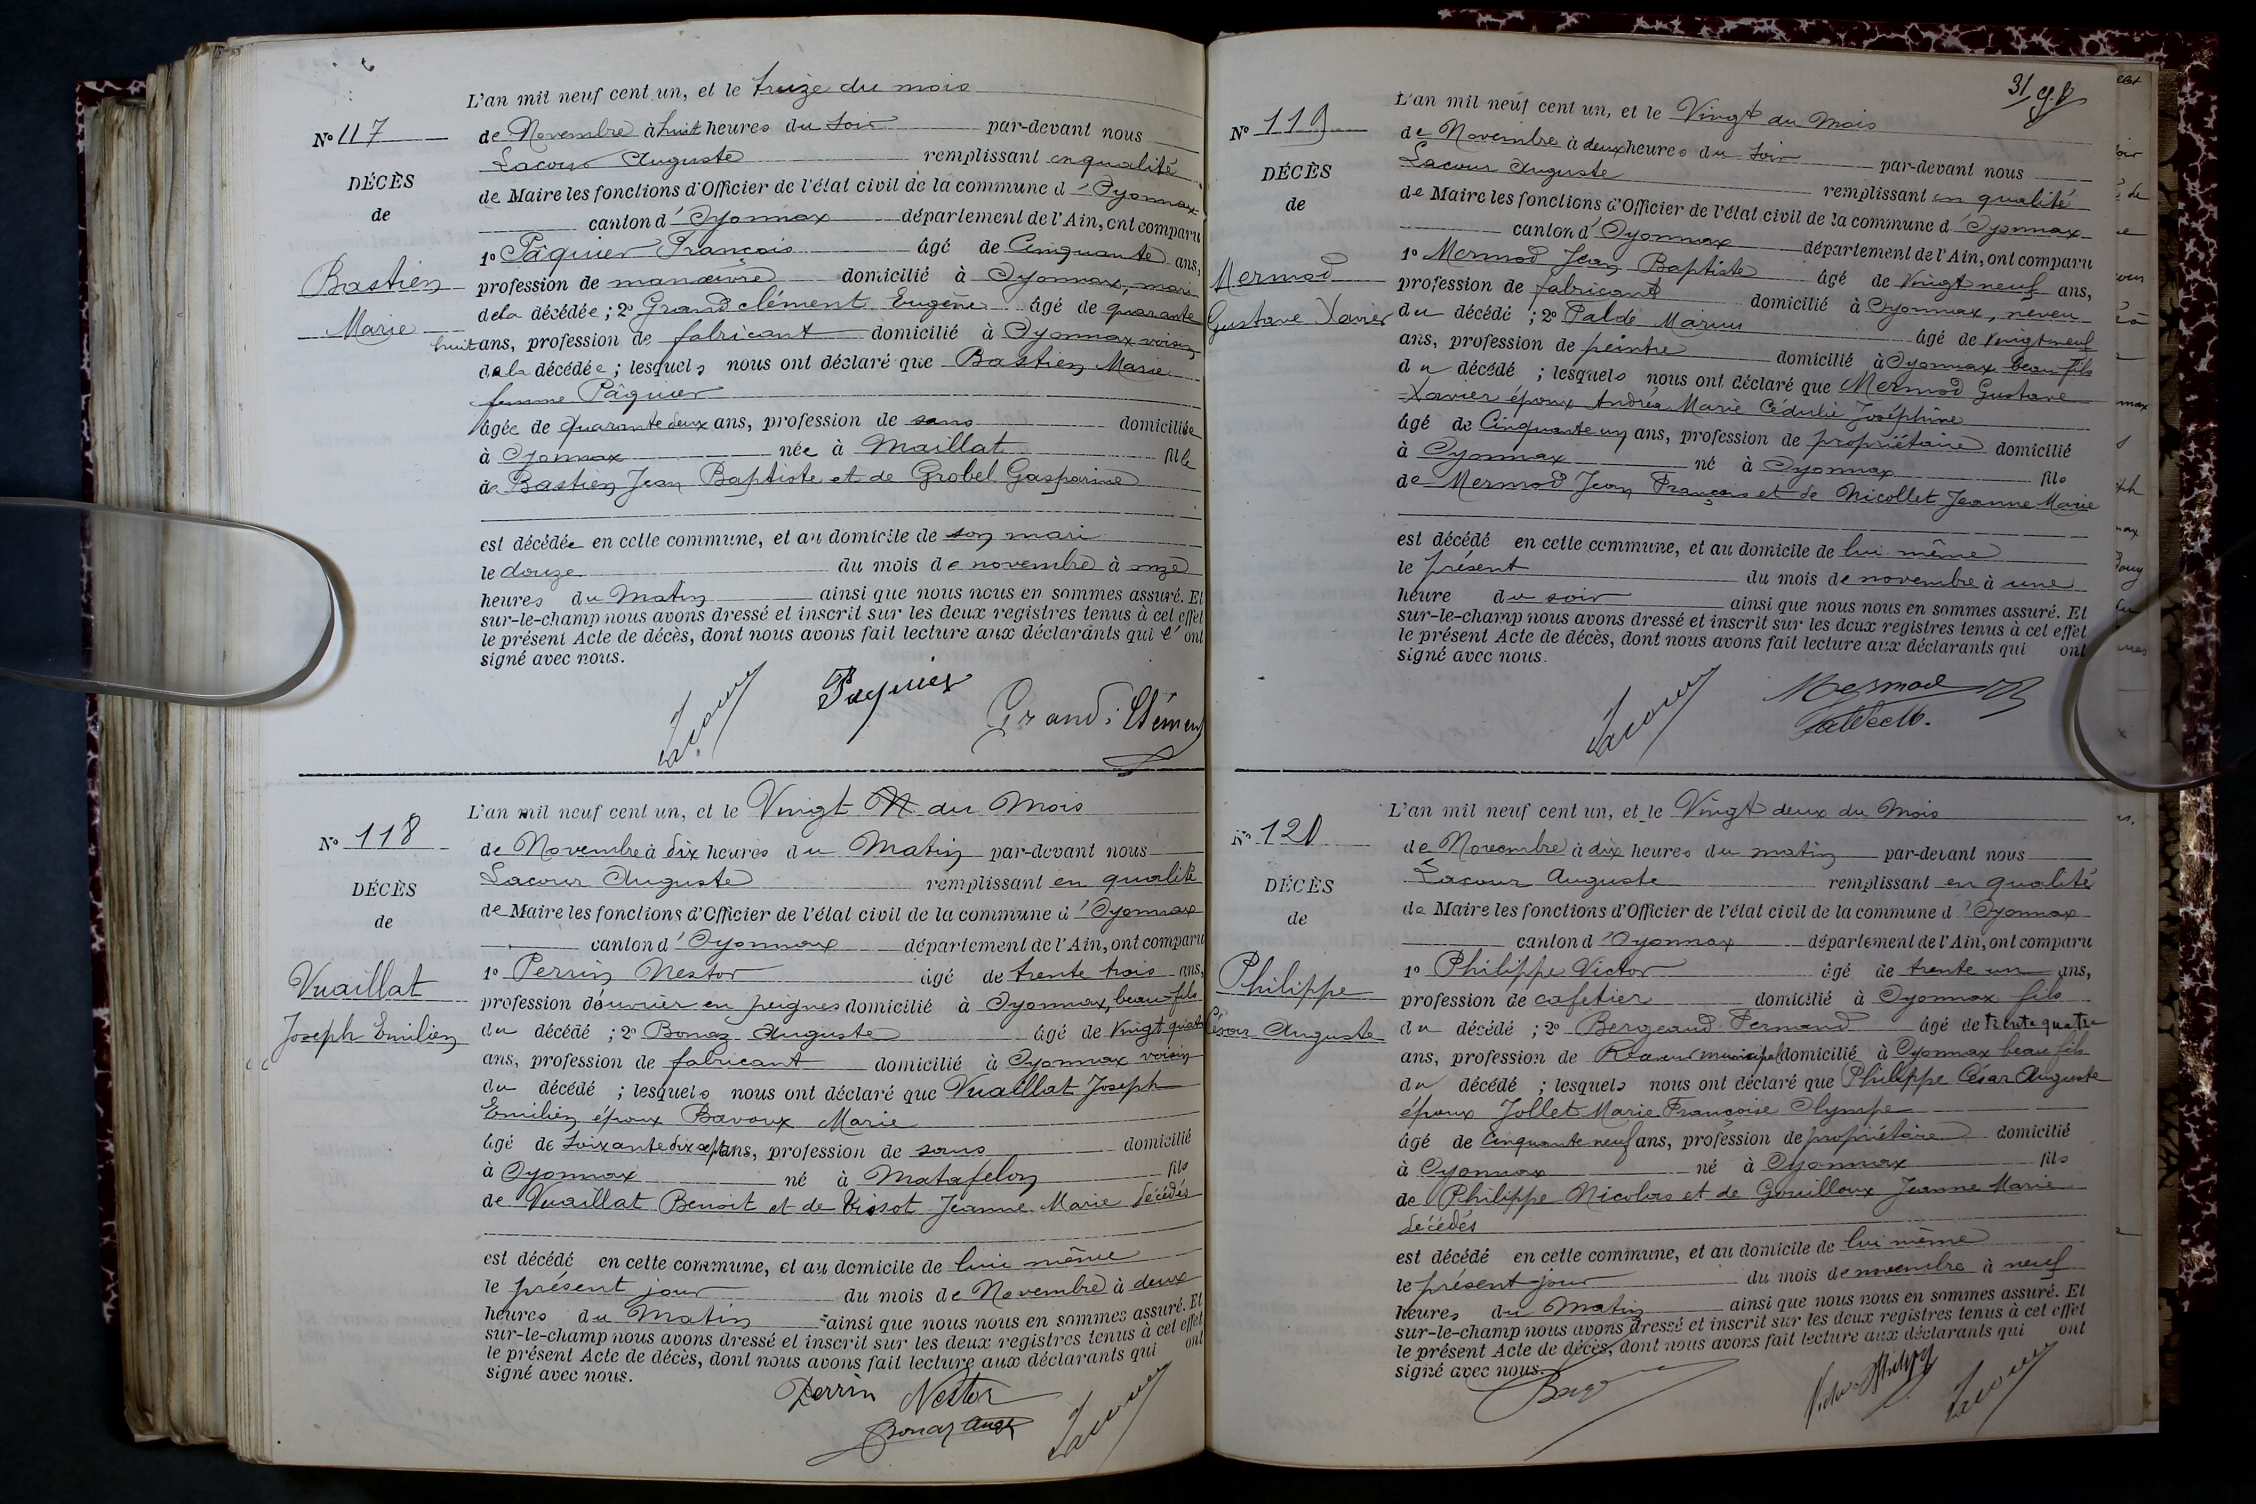 L'an mil neuf cent un, et le treize du mois
N° 117
de Novembre à huit heures du soir par-devant nous
Lacour Auguste remplissant en qualité
DÉCÈS
de Maire les fonctions d'Officier de l'état civil de la commune d'Oyonnax
de
canton d'Oyonnax département de l'Ain, ont comparu
1° Pâquier François âgé de Cinquante ans,
Bastien
profession de manœuvre domicilié à Oyonnax, mari
de la décédée ; 2° Grandclément Eugène âgé de quarante
Marie
huit ans, profession de fabricant domicilié à Oyonnax voisin
de la décédée ; lesquels nous ont déclaré que Bastien Marie
femme Pâquier
âgée de quarante deux ans, profession de sans domiciliée
à Oyonnax née à Maillat fille
de Bastien Jean Baptiste et de Grobel Gasparine
est décédée en cette commune, et au domicile de son mari
le douze du mois de novembre à onze
heures du Matin ainsi que nous nous en sommes assuré. Et
sur-le-champ nous avons dressé et inscrit sur les deux registres tenus à cet effet
le présent Acte de décès, dont nous avons fait lecture aux déclarants qui l'ont
signé avec nous.
Lacour Paquier Grand Clément
L'an mil neuf cent un, et le Vingt du Mois
N° 118
de Novembre à dix heures du Matin par-devant nous
Lacour Auguste remplissant en qualité
DÉCÈS
de Maire les fonctions d'Officier de l'état civil de la commune d'Oyonnax
de
canton d'Oyonnax département de l'Ain, ont comparu
1° Perrin Nestor âgé de trente trois ans,
Vuaillat
profession d'ouvrier en peignes domicilié à Oyonnax, beau-fils
Joseph Emilien
du décédé ; 2° Bonaz Auguste âgé de Vingt quatre
ans, profession de fabricant domicilié à Oyonnax voisin
du décédé ; lesquels nous ont déclaré que Vuaillat Joseph
Emilien époux Bavoux Marie
âgé de soixante dix sept ans, profession de sans domicilié
à Oyonnax né à Matafelon fils
de Vuaillat Benoit et de Vissot Jeanne Marie décédés
est décédé en cette commune, et au domicile de lui même
le présent jour du mois de Novembre à deux
heures du Matin ainsi que nous nous en sommes assuré. Et
sur-le-champ nous avons dressé et inscrit sur les deux registres tenus à cet effet
le présent Acte de décès, dont nous avons fait lecture aux déclarants qui ont
signé avec nous.
Perrin Nestor
Bonaz Aug Lacour
31
L'an mil neuf cent un, et le Vingt du Mois
N° 119
de Novembre à deux heures du soir par-devant nous
Lacour Auguste remplissant en qualité
DÉCÈS
de Maire les fonctions d'Officier de l'état civil de la commune d'Oyonnax
de
canton d'Oyonnax département de l'Ain, ont comparu
1° Mermod Jean Baptiste âgé de Vingt neuf ans,
Mermod
profession de fabricant domicilié à Oyonnax, neveu
Gustave Xavier
du décédé ; 2° Palde Marius âgé de vingt neuf
ans, profession de peintre domicilié à Oyonnax beau fils
du décédé ; lesquels nous ont déclaré que Mermod Gustave
Xavier époux Andréa Marie Cédulie Joséphine
âgé de Cinquante un ans, profession de propriétaire domicilié
à Oyonnax né à Oyonnax fils
de Mermod Jean François et de Nicollet Jeanne Marie
est décédé en cette commune, et au domicile de lui même
le présent du mois de novembre à une
heure du soir ainsi que nous nous en sommes assuré. Et
sur-le-champ nous avons dressé et inscrit sur les deux registres tenus à cet effet
le présent Acte de décès, dont nous avons fait lecture aux déclarants qui ont
signé avec nous.
Lacour Mermod
L'an mil neuf cent un, et le Vingt deux du Mois
N° 120
de Novembre à dix heures du matin par-devant nous
Lacour Auguste remplissant en qualité
DÉCÈS
de Maire les fonctions d'Officier de l'état civil de la commune d'Oyonnax
de
canton d'Oyonnax département de l'Ain, ont comparu
1° Philippe Victor âgé de trente un ans,
Philippe
profession de cafetier domicilié à Oyonnax fils
César Auguste
du décédé ; 2° Bergeaud Fernand âgé de trente quatre
ans, profession de municipal domicilié à Oyonnax beau fils
du décédé ; lesquels nous ont déclaré que Philippe César Auguste
époux Jollet Marie Françoise Olympe
âgé de Cinquante neuf ans, profession de propriétaire domicilié
à Oyonnax né à Oyonnax fils
de Philippe Nicolas et de Gouilloux Jeanne Marie
décédés
est décédé en cette commune, et au domicile de lui même
le présent jour du mois de novembre à neuf
heures du Matin ainsi que nous nous en sommes assuré. Et
sur-le-champ nous avons dressé et inscrit sur les deux registres tenus à cet effet
le présent Acte de décès, dont nous avons fait lecture aux déclarants qui ont
signé avec nous.
Lacour